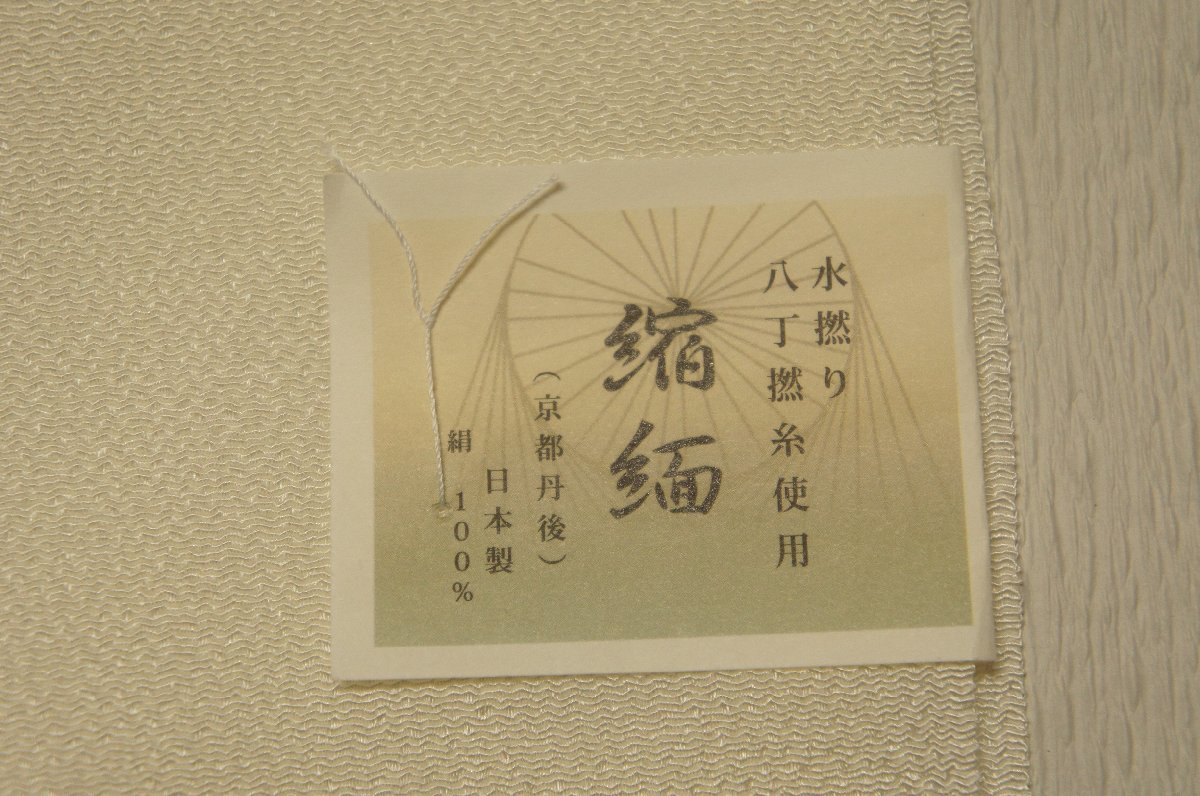 水撚り
八丁撚糸使用
縮緬
（京都丹後）
日本製
絹　100%